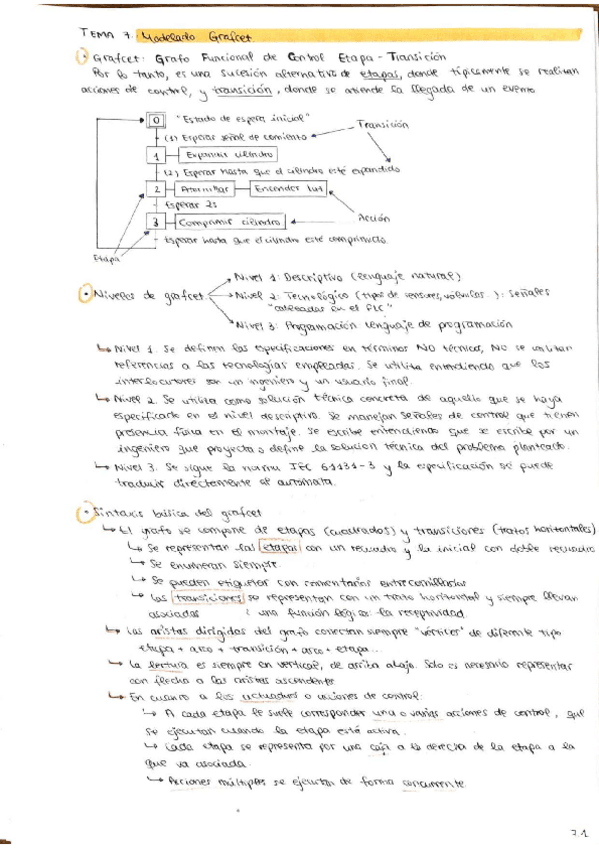 TEMA 7. Modelado Grafcet.
Grafcet: Grafo Funcional de Control Etapa - Transición
Por lo tanto, es una sucesión alternativa de etapas, donde típicamente se realizan
acciones de control, y transición, donde se atiende la llegada de un evento
0 "Estado de espera inicial"
Transición
(1) Esperar señal de comienzo
1 Expandir cilindro
(2) Esperar hasta que el cilindro esté expandido
2 Atornillar Encender luz
Esperar 2s
3 Comprimir cilindro
Acción
Esperar hasta que el cilindro esté comprimido
Etapa
Nivel 1: Descriptivo (lenguaje natural)
Niveles de grafcet Nivel 2: Tecnológico (tipos de sensores, válvulas...): señales
"cableadas en el PLC"
Nivel 3: Programación lenguaje de programación
Nivel 1. Se definen las especificaciones en términos NO técnicos, NO se utilizan
referencias a las tecnologías empleadas. Se utiliza entendiendo que los
interlocutores son un ingeniero y un usuario final.
Nivel 2. Se utiliza como solución técnica concreta de aquello que se haya
especificado en el nivel descriptivo. Se manejan señales de control que tienen
presencia física en el montaje. Se escribe entendiendo que se escribe por un
ingeniero que proyecta o define la solución técnica del problema planteado.
Nivel 3. Se sigue la norma IEC 61131-3 y la especificación se puede
traducir directamente al autómata.
Sintaxis básica del grafcet
El grafo se compone de etapas (cuadrados) y transiciones (tratos horizontales)
Se representan las etapas con un recuadro y la inicial con doble recuadro
Se enumeran siempre.
Se pueden etiquetar con comentarios entrecomillados
Las transiciones se representan con un trato horizontal y siempre llevan
asociadas : una función lógica: la receptividad.
Las aristas dirigidas del grafo conectan siempre "vértices" de diferente tipo
etapa + arco + transición + arco + etapa...
La lectura es siempre en vertical, de arriba abajo. Solo es necesario representar
con flecha a las aristas ascendentes
En cuanto a los actuadores o acciones de control:
A cada etapa le suele corresponder una o varias acciones de control, que
se ejecutan cuando la etapa está activa.
Cada etapa se representa por una caja a la derecha de la etapa a la
que va asociada.
Acciones múltiples se ejecutan de forma concurrente
7.1